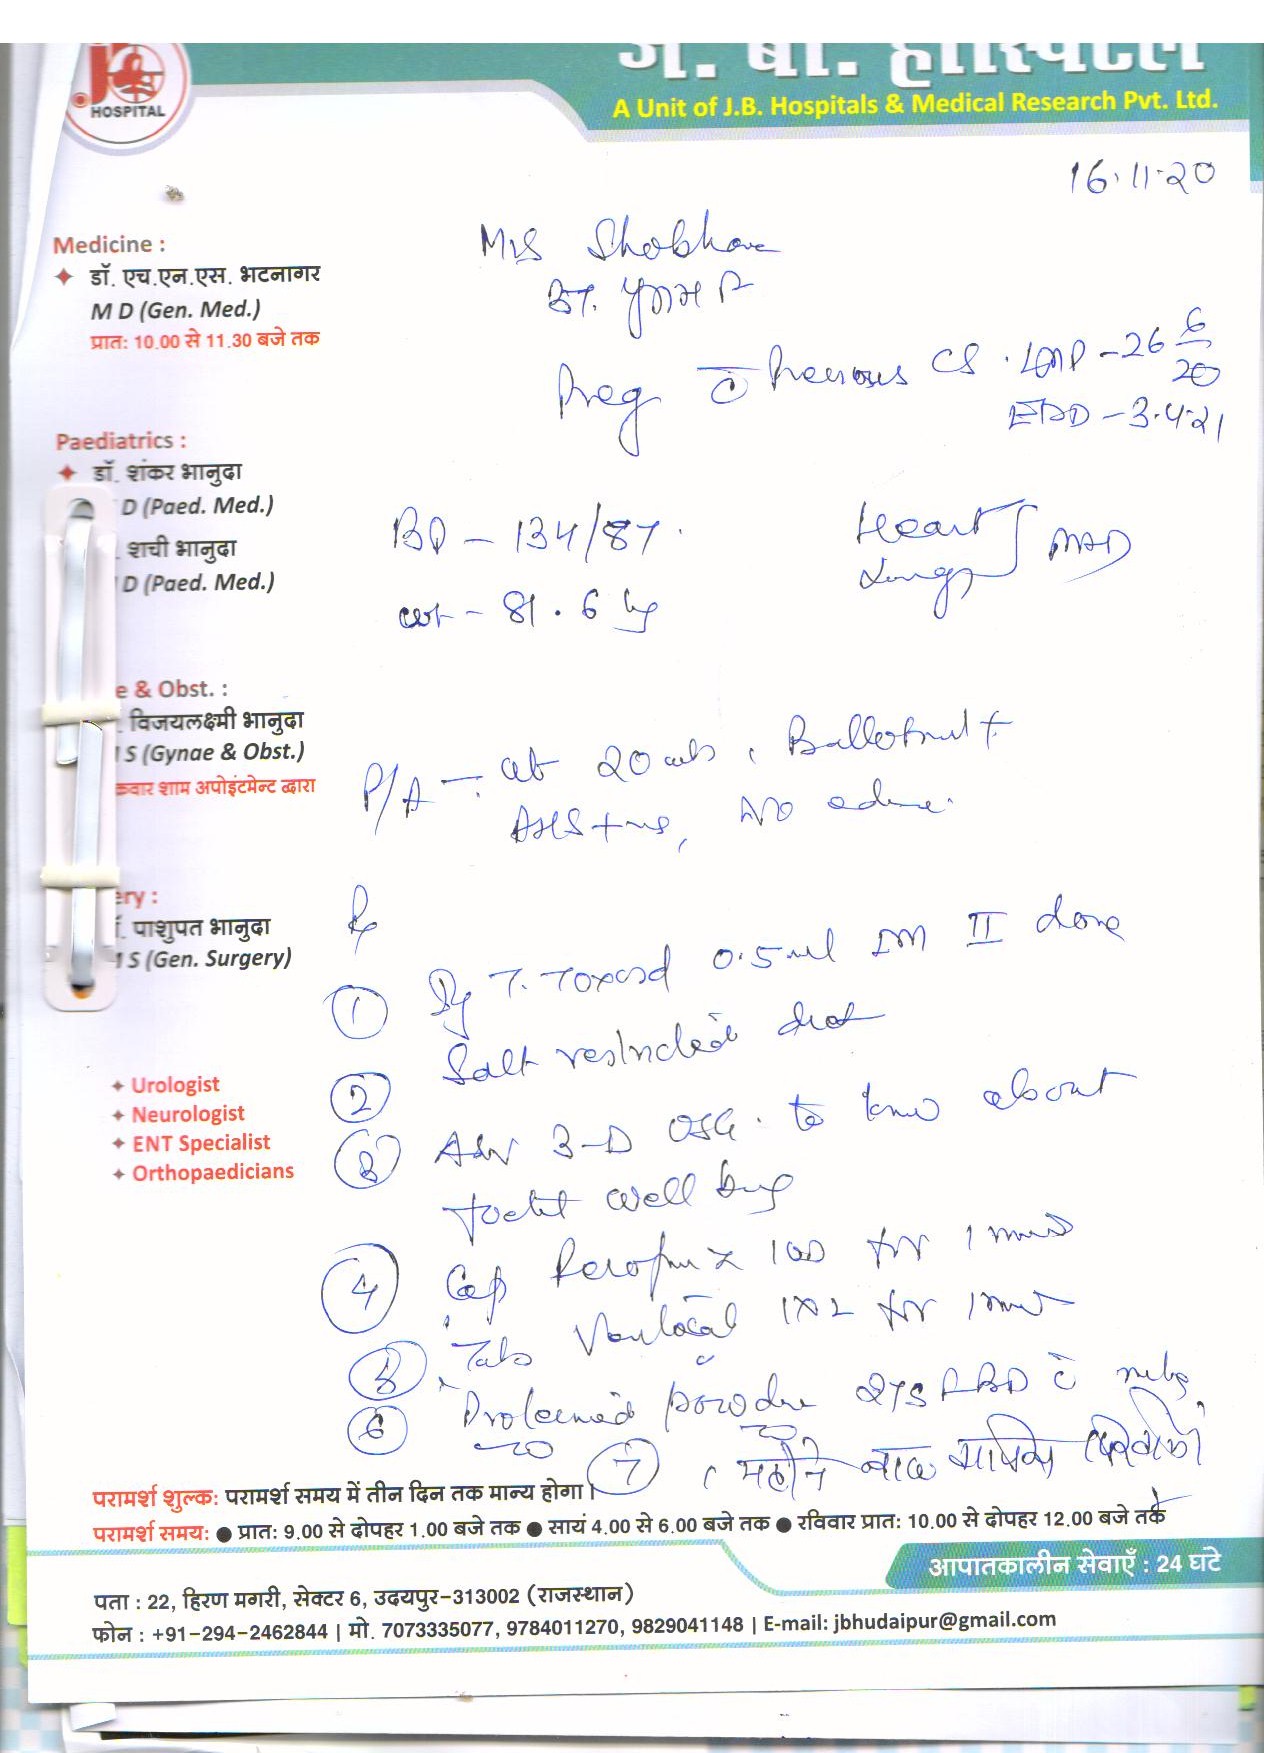 जे. बी. हॉस्पिटल
HOSPITAL
A Unit of J.B. Hospitals & Medical Research Pvt. Ltd.
16.11.20
Medicine :
डॉ. एच.एन.एस. भटनागर
M D (Gen. Med.)
प्रातः 10.00 से 11.30 बजे तक
Mrs Shobhna
Preg c̄ Previous CS. LMP - 26 6/20
EDD - 3.4.21
Paediatrics :
डॉ. शंकर भानुदा
D (Paed. Med.)
शची भानुदा
D (Paed. Med.)
BP - 134/87.
Heart
Lungs
NAD
wt - 81.6 kg
e & Obst. :
विजयलक्ष्मी भानुदा
S (Gynae & Obst.)
कवार शाम अपोइंटमेन्ट द्वारा
P/A - ut 20 wks, Ballotment +
No edema.
ery :
पाशुपत भानुदा
S (Gen. Surgery)
Rx
1 Inj T. Toxoid 0.5 ml IM II done
2 Salt restricted diet
3 Adv 3-D USG. to know about
foetal well being
4 Cap 1 OD for 1 month
5 Tab 1x2 for 1 month
6 powder 2TSF BD c̄ milk
7 1 महीने बाद
Urologist
Neurologist
ENT Specialist
Orthopaedicians
परामर्श शुल्क: परामर्श समय में तीन दिन तक मान्य होगा।
परामर्श समय: ● प्रातः 9.00 से दोपहर 1.00 बजे तक ● सायं 4.00 से 6.00 बजे तक ● रविवार प्रातः 10.00 से दोपहर 12.00 बजे तक
आपातकालीन सेवाएँ : 24 घंटे
पता : 22, हिरण मगरी, सेक्टर 6, उदयपुर-313002 (राजस्थान)
फोन : +91-294-2462844 | मो. 7073335077, 9784011270, 9829041148 | E-mail: jbhudaipur@gmail.com